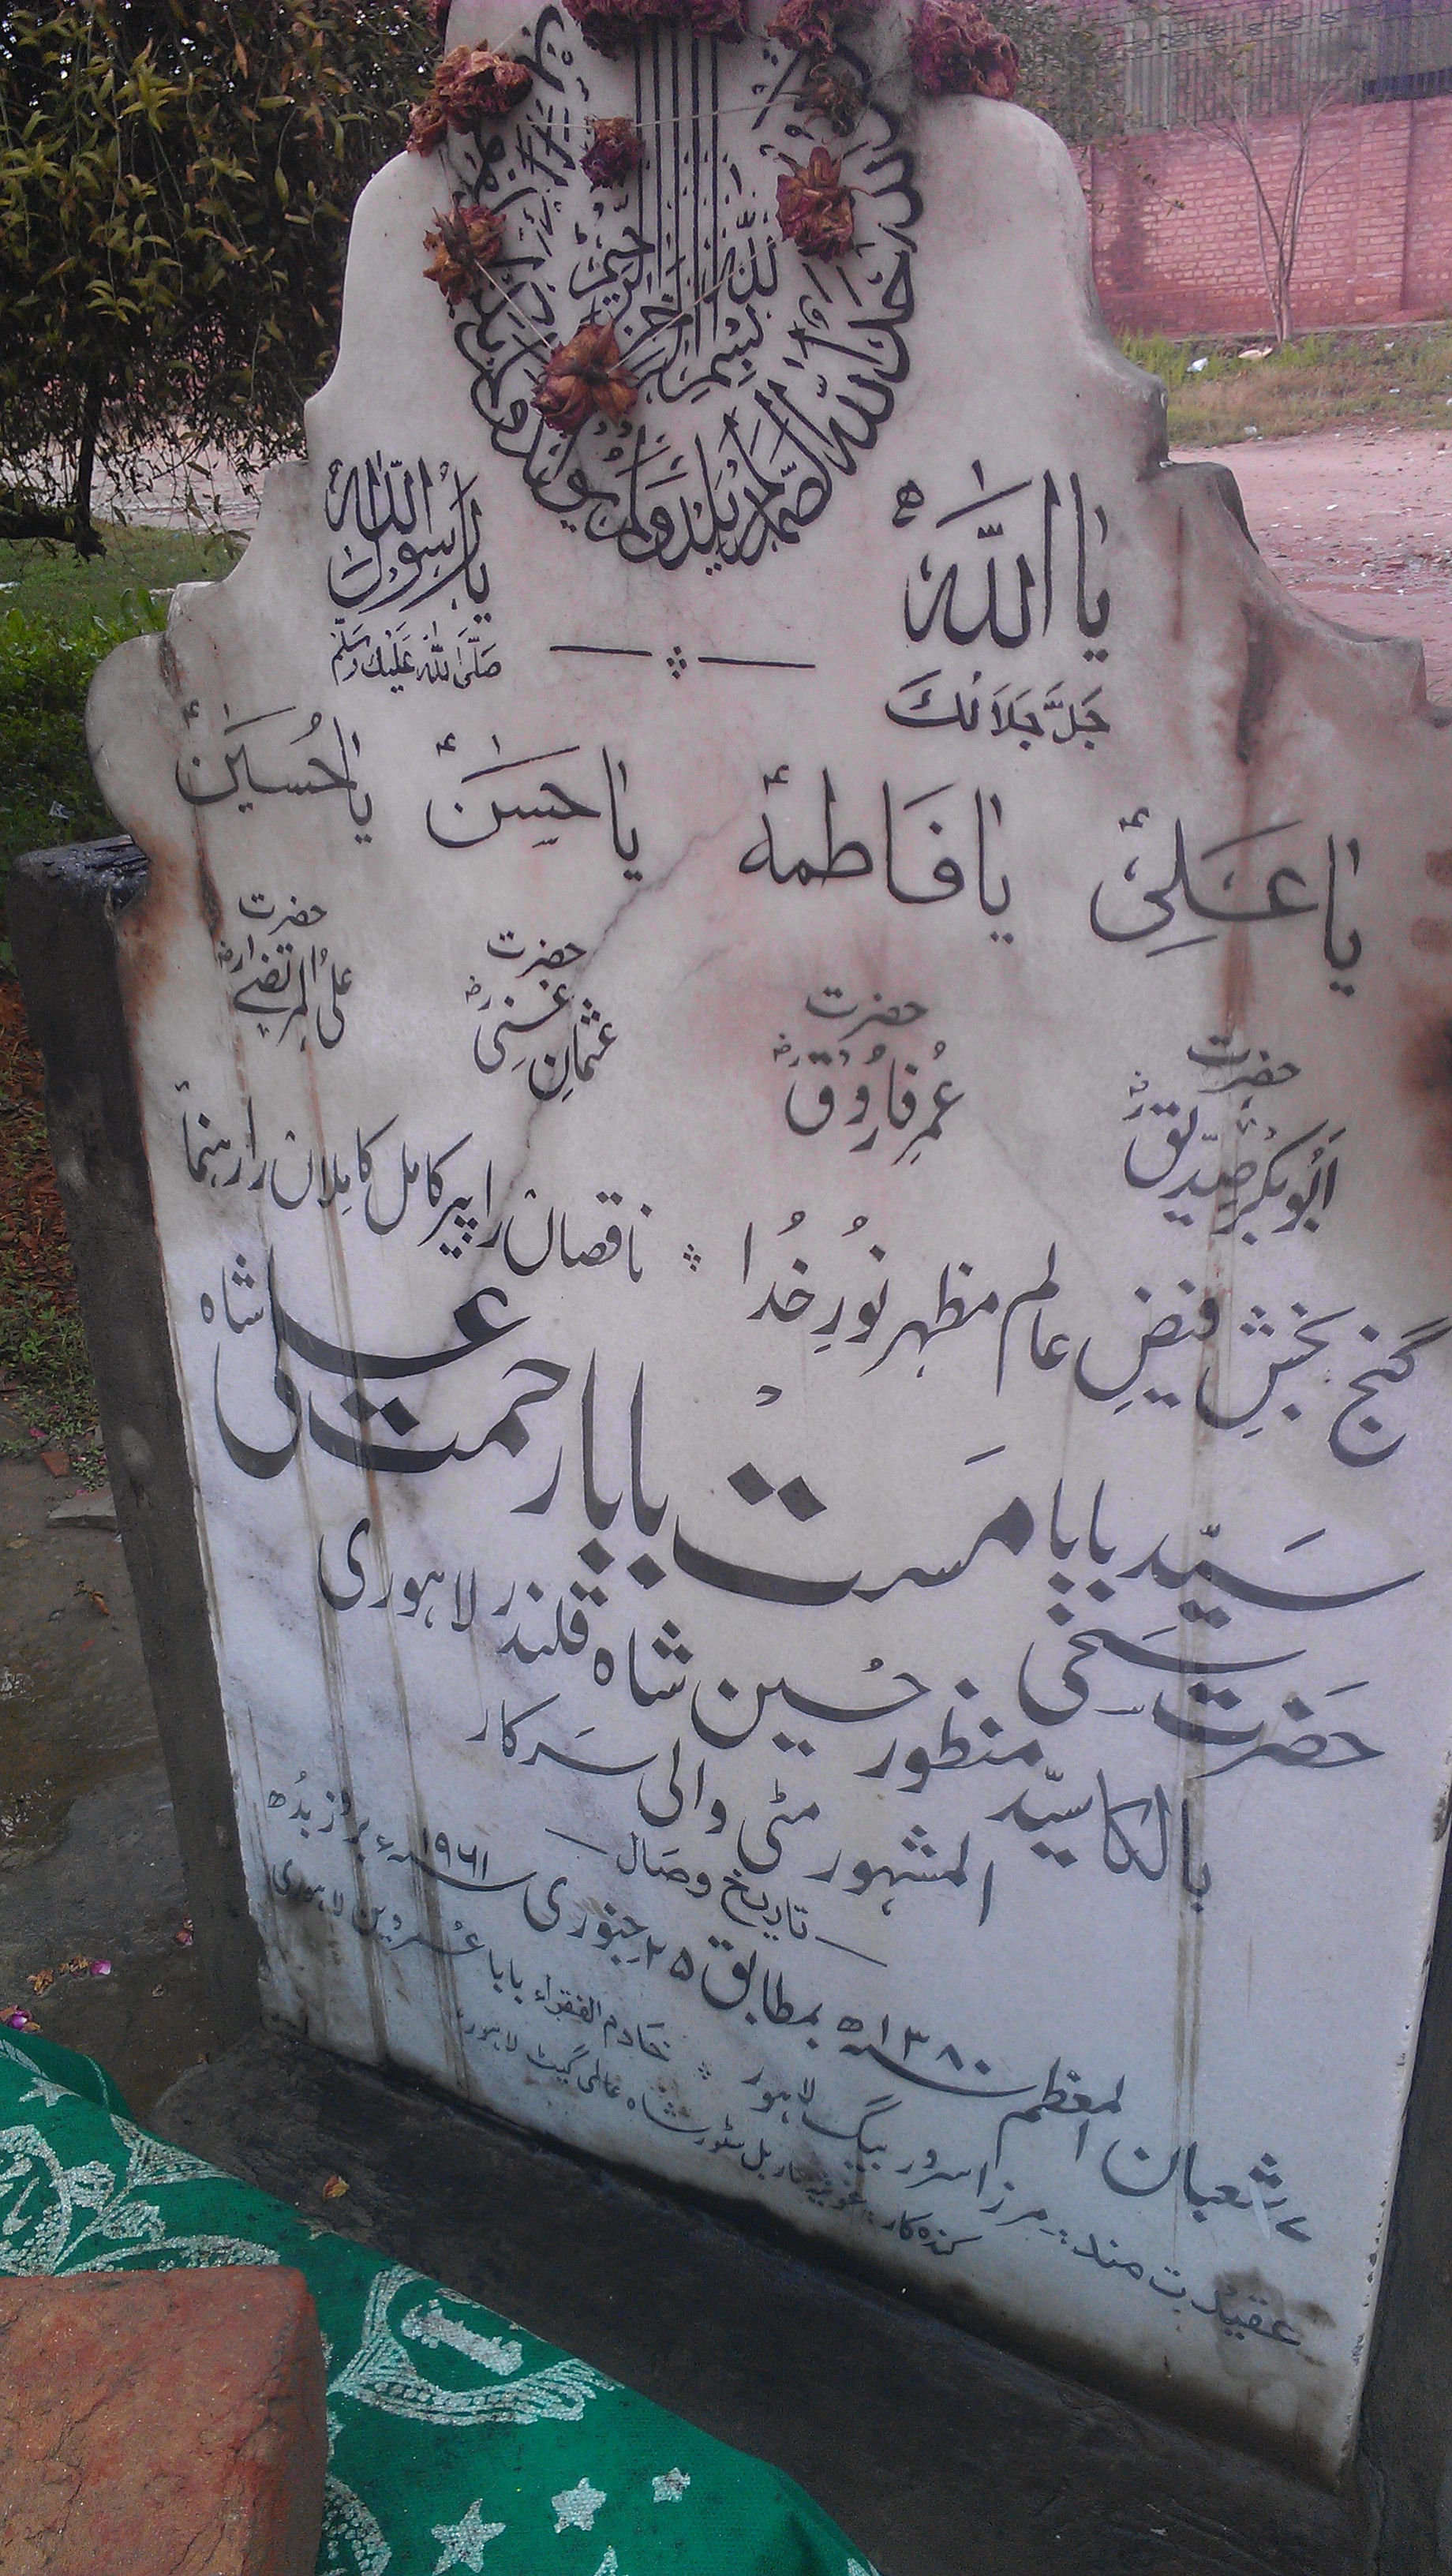 بسم الله الرحمن الرحيم
الله احد الله الصمد لم يلد ولم يولد ولم يكن
یا اللہ
جَلَّ جَلَالُكَ
یا رسول اللہ
صَلَّی اللہ عَلَیْكَ وَسَلَّم
یا علیؑ یا فاطمہؑ یا حسنؑ یا حسینؑ
حضرت ابوبکر صدیقؓ حضرت عمر فاروقؓ حضرت عثمان غنیؓ حضرت علی المرتضےؓ
گنج بخشِ فیضِ عالم مظہرِ نُورِ خُدا ؞ ناقصاں را پیرِ کامل کاملاں را رہنما
سیّد بابا مست بابا رحمت علی شاہ
حضرت سخی سیّد منظور حُسین شاہ قلندر لاہوری
بالکا
المشہور مٹی والی سرکار
تاریخ وصال
۷ شعبان المعظم ۱۳۸۰ھ بمطابق ۲۵ جنوری ۱۹۶۱ء بروز بُدھ
عقیدت مند: مرزا سرور بیگ لاہور ؞ خادم الفقراء بابا لاہوری
کندہ کار: ماربل سٹور شاہ عالمی گیٹ لاہور